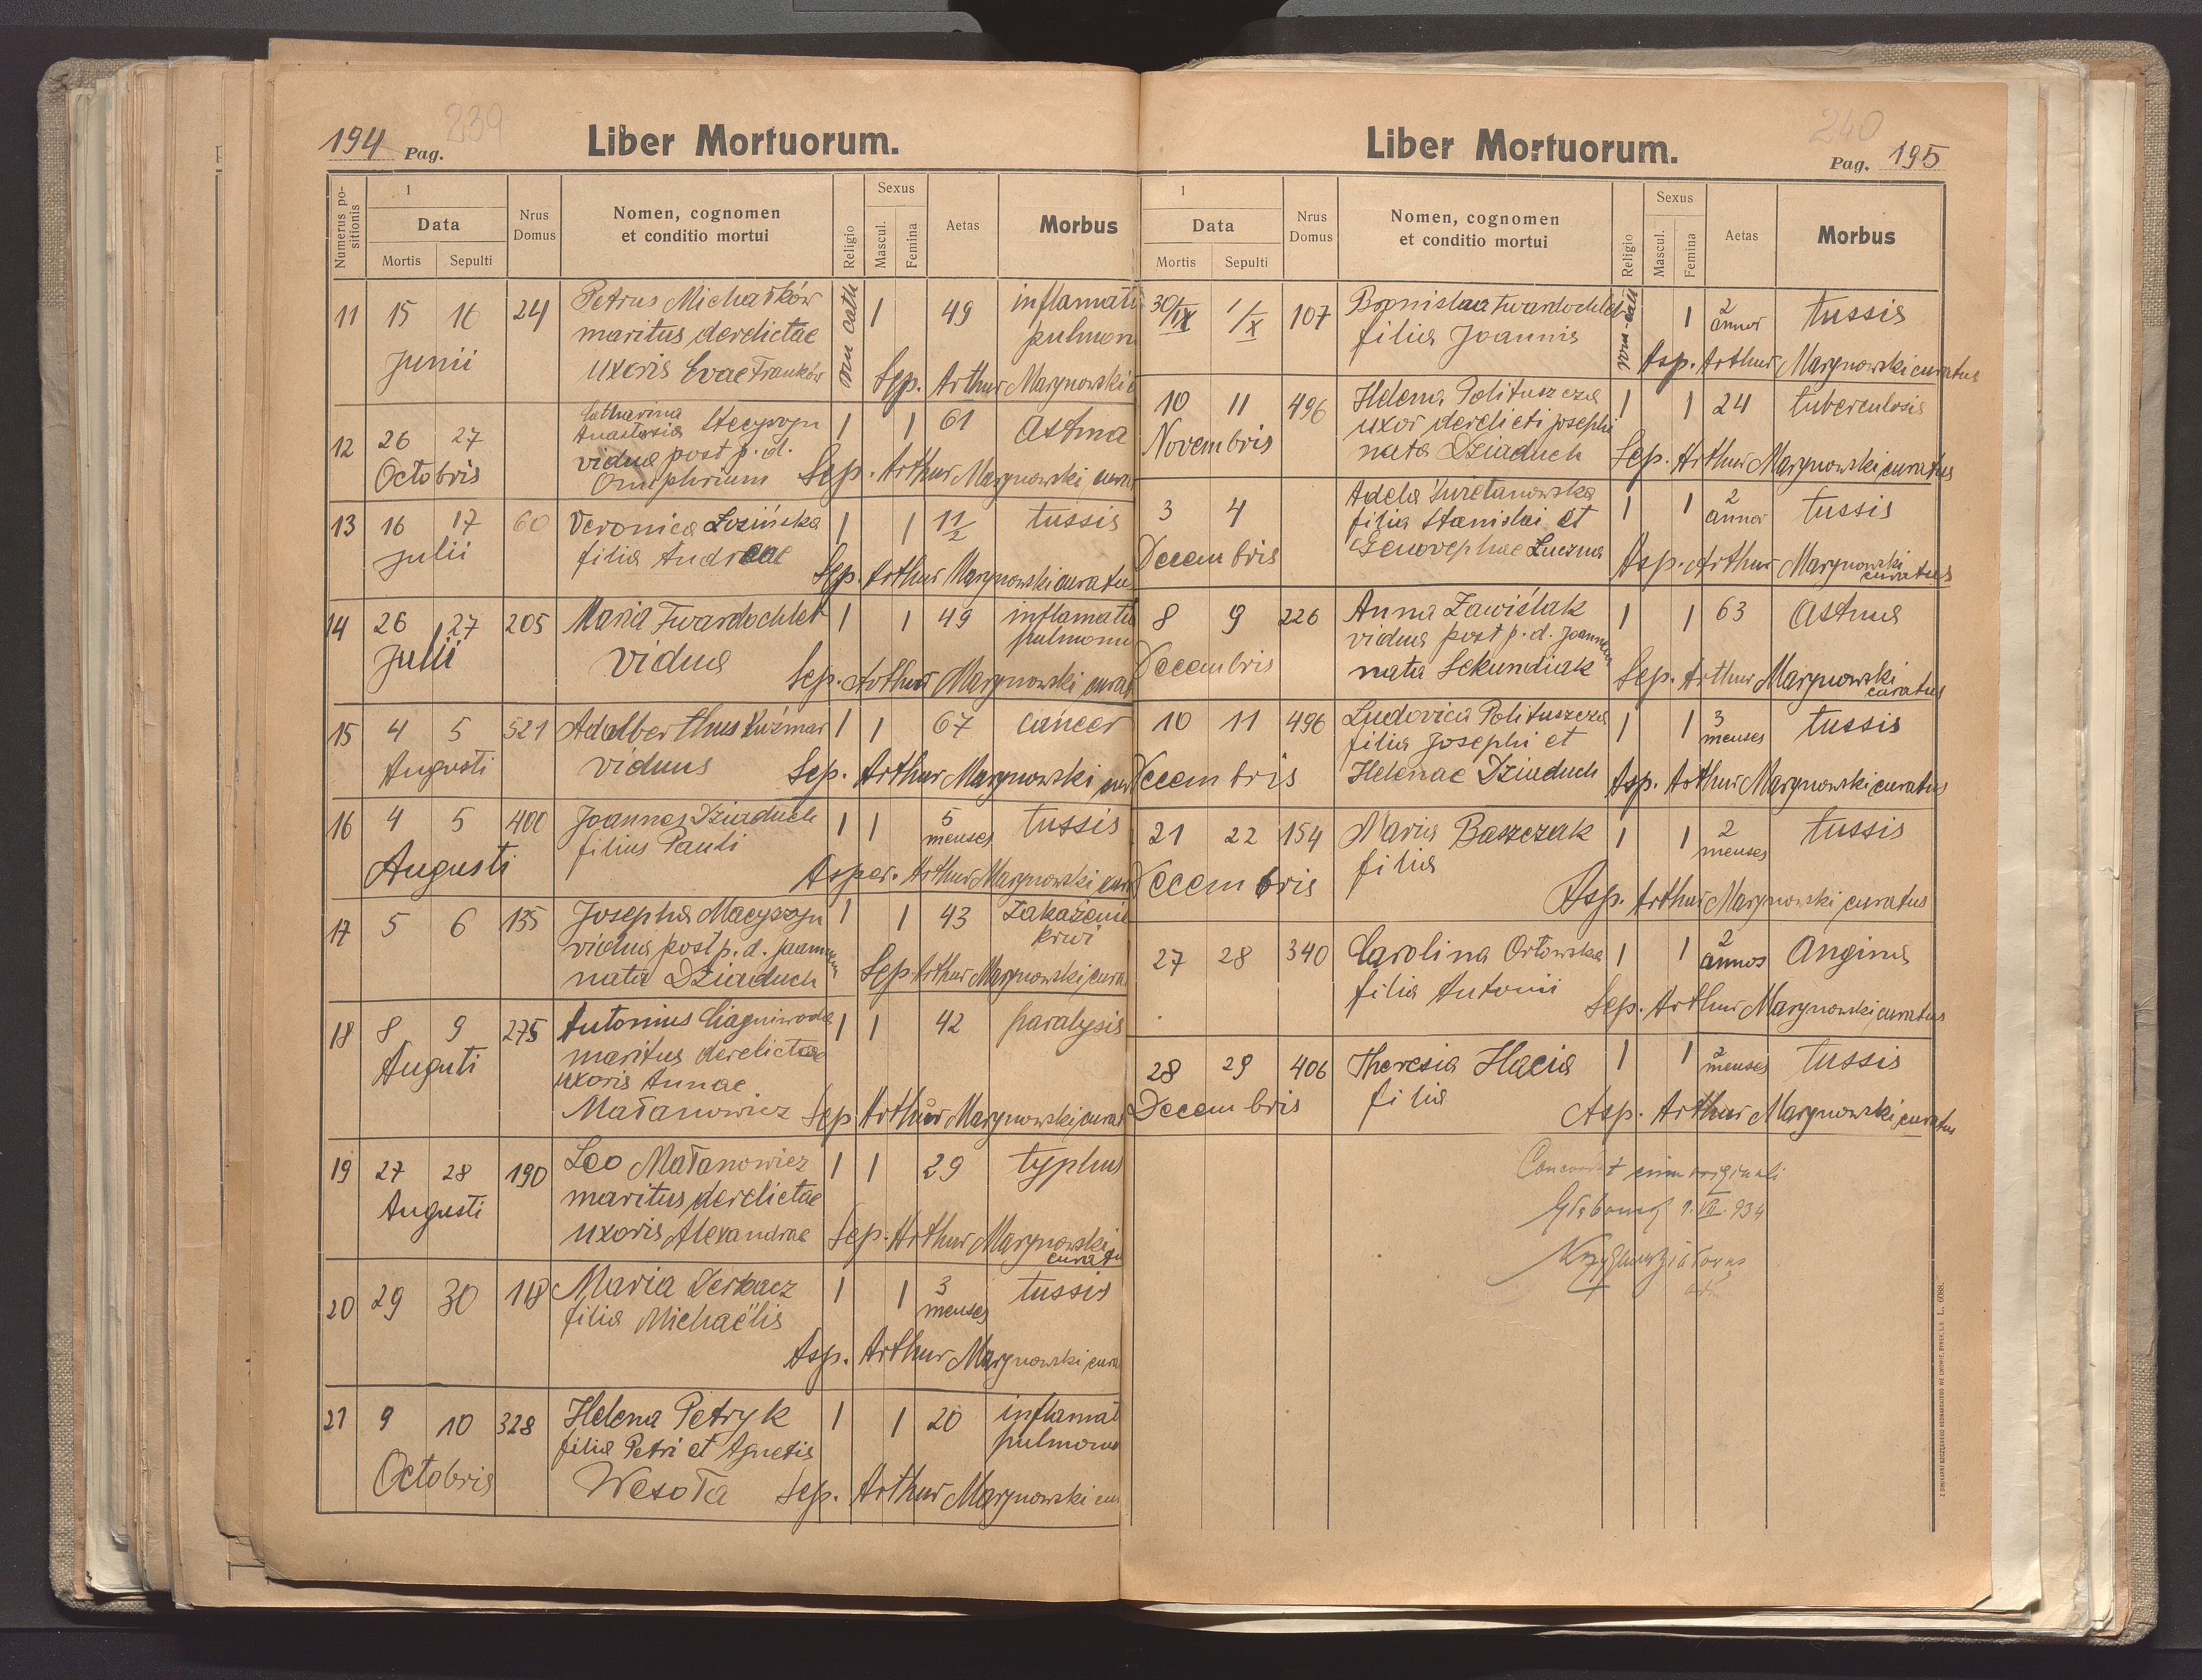 194 Pag. 239
Liber Mortuorum.
Numerus positionis
1
Data
Mortis Sepulti
Nrus Domus
Nomen, cognomen
et conditio mortui
Religio
Sexus
Mascul. Femina
Aetas
Morbus
11 15 16 24 Petrus Michałków 1 49 inflamati
maritus derelictae pulmon
Junii uxoris Evae Franków Sep. Arthur Marynowski
Catharina
12 26 27 Anastasia Stecyszyn 1 1 61 Astma
vidua post p. d.
Octobris Onuphrium Sep. Arthur Marynowski curat
13 16 17 60 Veronica Łozińska 1 1 11/2 tussis
Julii filia Andreae
Sep. Arthur Marynowski curatu
14 26 27 205 Maria Twardochleb 1 1 49 inflamatio
pulmonu
Julii vidua Sep. Arthur Marynowski curat
15 4 5 521 Adalberthus Kuźmar 1 1 67 cancer
Augusti viduus Sep. Arthur Marynowski cur
16 4 5 400 Joannes Dziaduch 1 1 5 menses tussis
filius Pauli
Augusti Asper. Arthur Marynowski cura
17 5 6 135 Josepha Macyszyn 1 1 43 Zakażenie
vidua post p. d. Joannem krwi
nata Dziaduch Sep Arthur Marynowski cura
18 8 9 275 Antonius Ciągniwoda 1 1 42 paralysis
maritus derelictae
Auguti uxoris Annae
Małanowicz Sep Arthur Marynowski curat
19 27 28 190 Leo Małanowicz 1 1 29 typhus
maritus derelictae
Augusti uxoris Alexandrae Sep. Arthur Marynowski
curatu
20 29 30 118 Maria Derkacz 1 1 3 menses tussis
filia Michaëlis
Asp. Arthur Marynowski cura
21 9 10 328 Helena Petryk 1 1 20 inflamat
filia Petri et Agnetis pulmonu
Octobris Wesoła Sep. Arthur Marynowski cu
240
Liber Mortuorum.
Pag. 195
1
Data
Mortis Sepulti
Nrus Domus
Nomen, cognomen
et conditio mortui
Religio
Sexus
Mascul. Femina
Aetas
Morbus
30/IX 1/X 107 Bronislaa Twardochleb 1 2 annos tussis
filia Joannis
Asp. Arthur Marynowski curatus
10 11 496 Helena Polituszcza 1 1 24 tuberculosis
uxor derelicti Josephi
Novembris nata Dziaduch Sep. Arthur Marynowski curatus
3 4 Adela Kwietanowska 1 1 2 annos tussis
filia Stanislai et
Decembris Genovephae Luczma Asp. Arthur Marynowski
curatus
8 9 226 Anna Zawiślak 1 1 63 Astma
vidua post p. d. Joannem
Decembris nata Sekundiak Sep. Arthur Marynowski
curatus
10 11 496 Ludovica Polituszcza 1 1 3 menses tussis
filia Josephi et
Decembris Helenae Dziaduch Asp. Arthur Marynowski curatus
21 22 154 Maria Baszczak 1 1 2 menses tussis
filia
Decembris Asp. Arthur Marynowski curatus
27 28 340 Carolina Orłowska 1 1 2 annos Angina
filia Antonii
Sep. Arthur Marynowski curatus
28 29 406 Theresia Hacia 1 1 2 menses tussis
filia
Decembris Asp. Arthur Marynowski curatus
Concordat cum originali